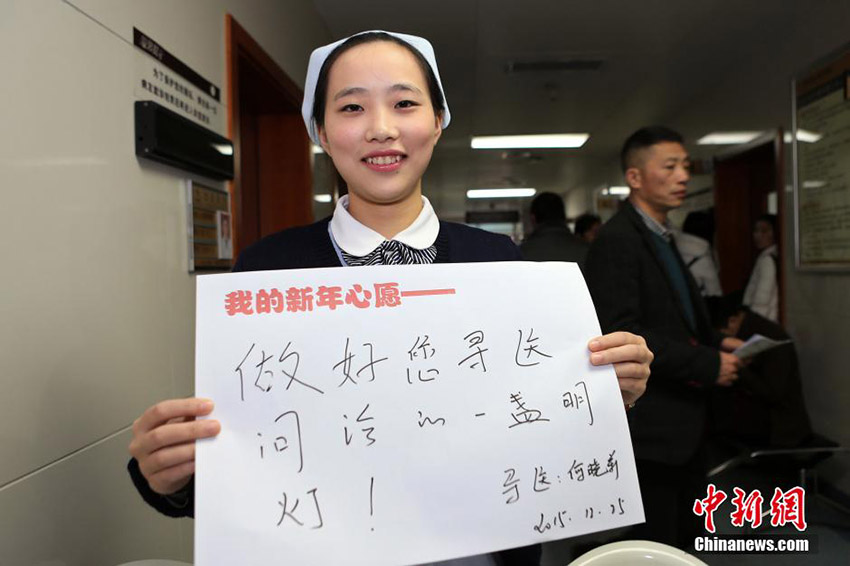 我的新年心愿——
做好您寻医
问诊的一盏明
灯！
导医：何晓莉
2015.12.25
中新网
Chinanews.com